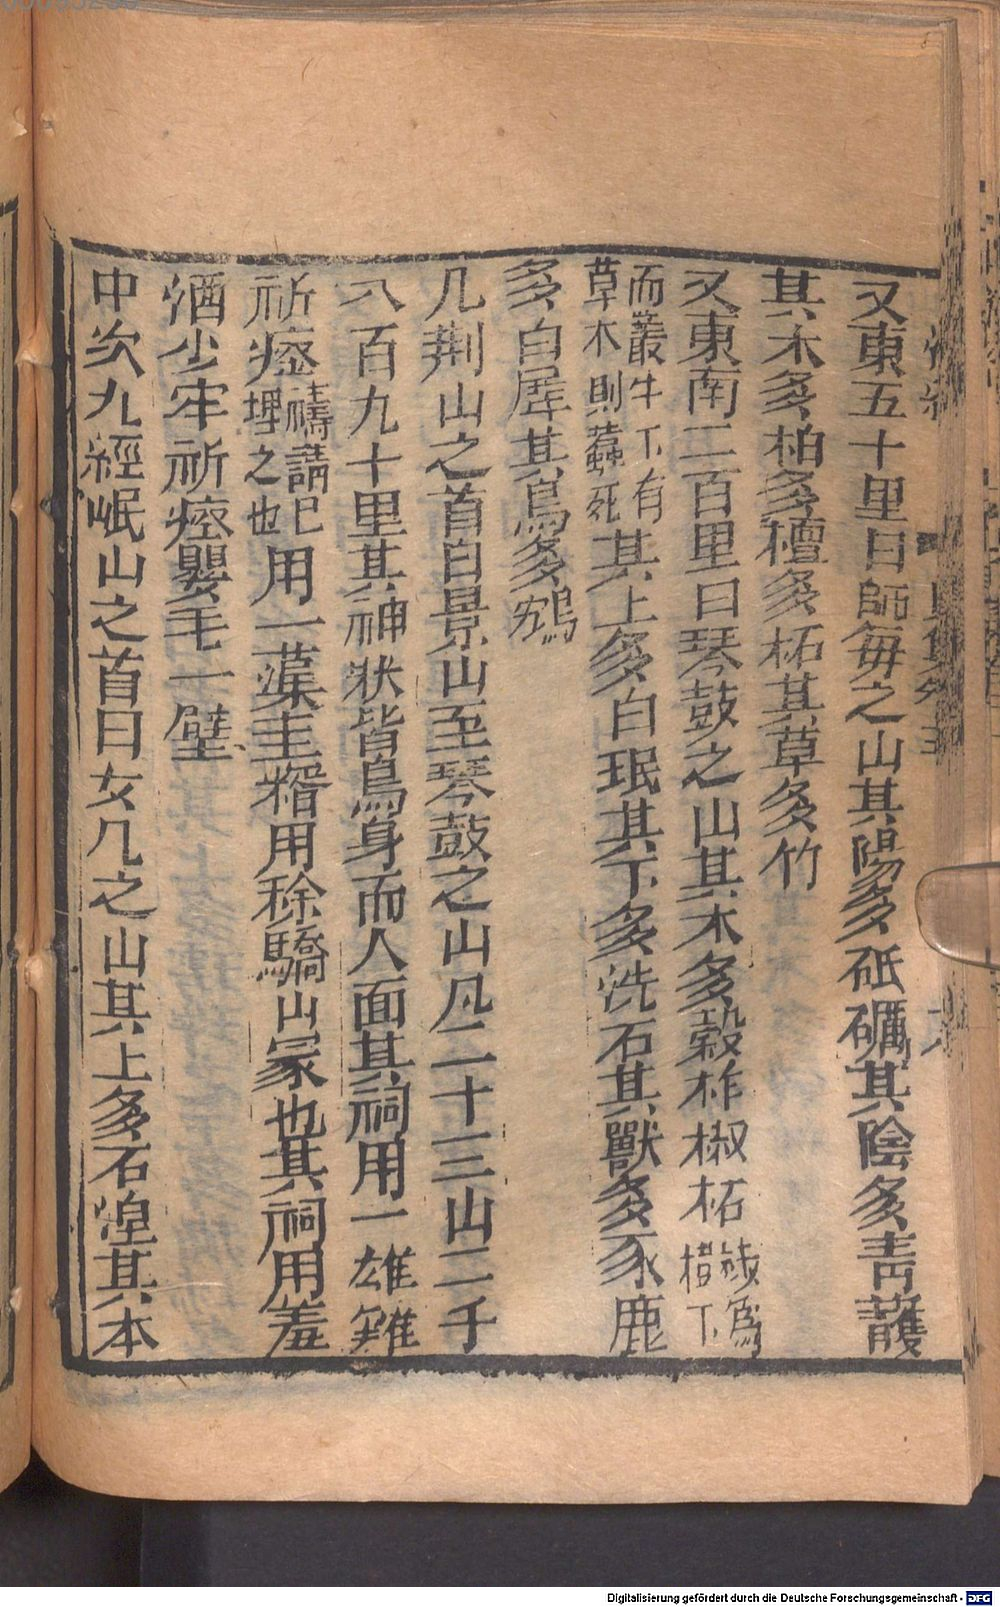 又東五十里曰師每之山其陽多砥礪其陰多青雘
其木多柏多檀多柘其草多竹
又東南二百里曰琴鼓之山其木多榖柞椒柘椒爲樹下
而叢生下有草木則蠚死其上多白珉其下多洗石其獸多豕鹿
多白犀其鳥多鴆
凡荆山之首自景山至琴鼓之山凡二十三山二千
八百九十里其神狀皆鳥身而人面其祠用一雄雞
祈瘞禱請已埋之也用一藻圭糈用稌驕山冢也其祠用羞
酒少牢祈瘞嬰毛一壁
中次九經岷山之首曰女几之山其上多石涅其木
Digitalisierung gefördert durch die Deutsche Forschungsgemeinschaft - DFG